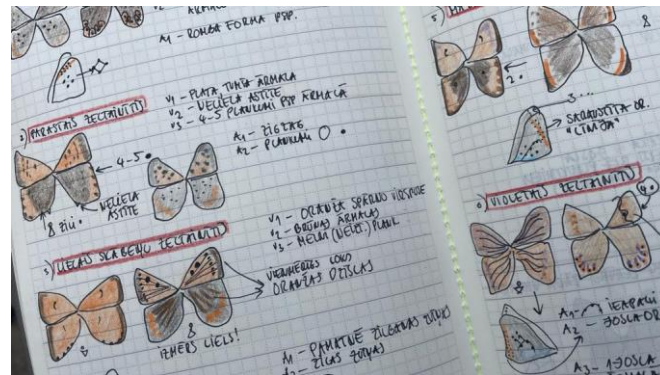 A1 - ROMBA FORMA PSP.
2) PARASTAIS ZELTAINĪTIS
V1 - PLATA, TUMŠA ĀRMALA
V2 - NELIELA ASTĪTE
V3 - 4-5 PLANKUMI PSP ĀRMALĀ
A1 - ZIGZAG
A2 - PLANKUMI
4-5
NELIELA
ASTĪTE
3) LIELAIS SKĀBEŅU ZELTAINĪTIS
V1 - ORANŽA SPĀRNU VIRSPUSE
V2 - BRŪNAS ĀRMALAS
V3 - MELNI (NELIELI) PLANK.
VIENMĒRĪGS LOKS
ORANŽAS DZĪSLAS
IZMĒRS LIELS!
A1 - PAMATNĒ ZILGANAS
5)
2.
3...
SARAUSTĪTA OR.
"LĪNIJA"
6) VIOLETAIS ZELTAINĪTIS
4.
A1 -
A2 - JOSLA OR
A3 - 1 JOSLA